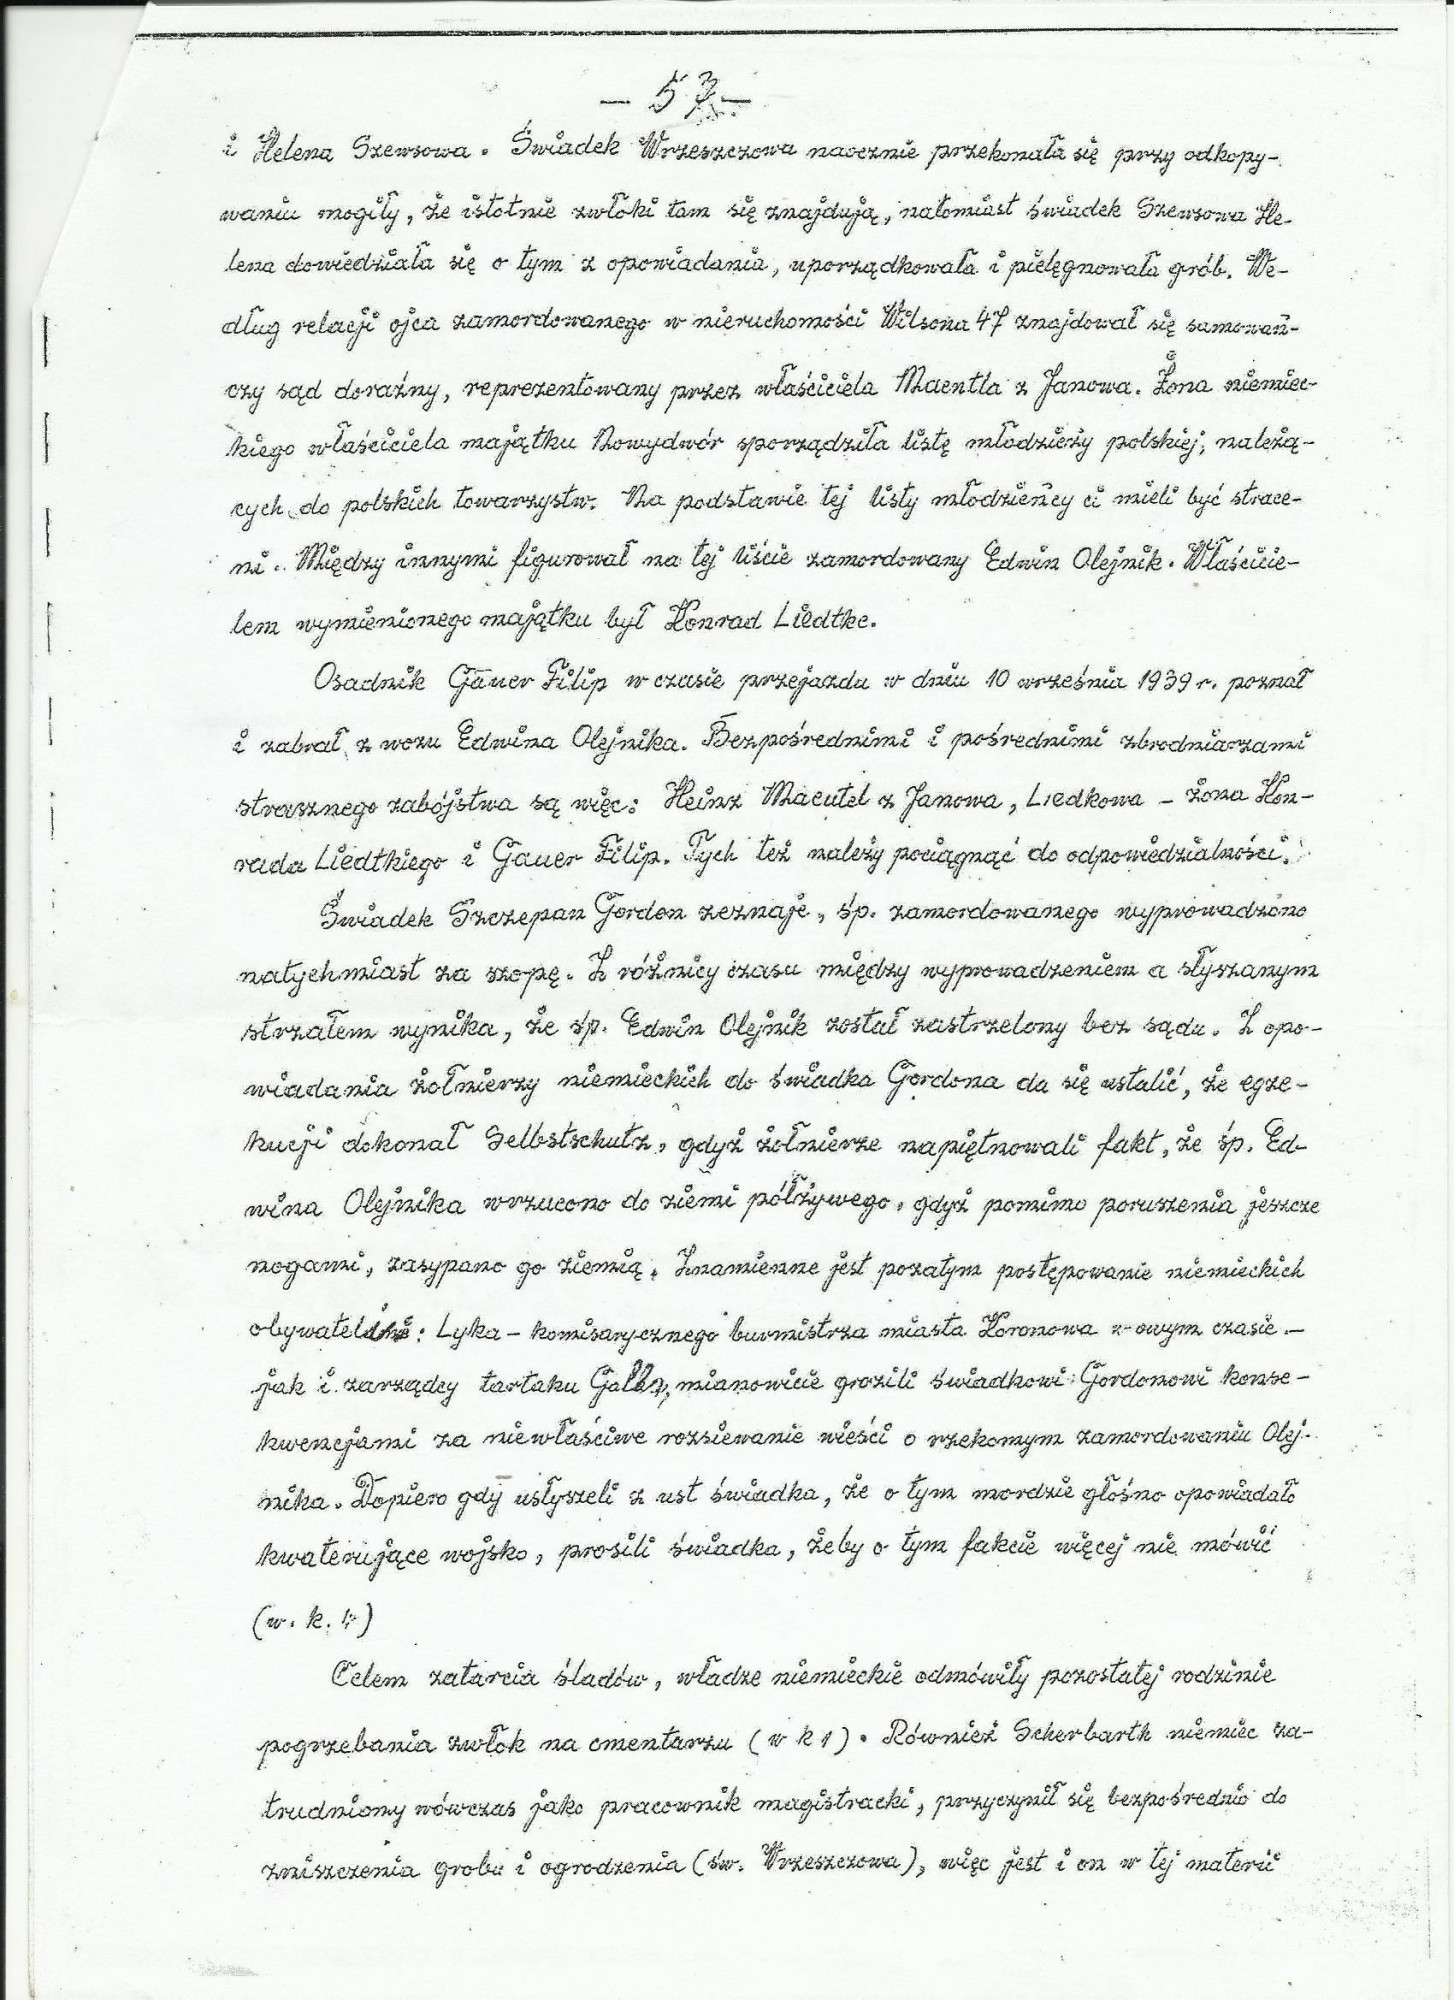 - 53 -
i Helena Szewsowa. Świadek Wrzeszczowa naocznie przekonała się przy odkopy-
waniu mogiły, że istotnie zwłoki tam się znajdują, natomiast świadek Szewsowa He-
lena dowiedziała się o tym z opowiadania, uporządkowała i pielęgnowała grób. We-
dług relacji ojca zamordowanego w nieruchomości Wilsona 47 znajdował się samowań-
czy sąd doraźny, reprezentowany przez właściciela Maentla z Janowa. Żona niemiec-
kiego właściciela majątku Nowydwór sporządziła listę młodzieży polskiej, należą-
cych do polskich towarzystw. Na podstawie tej listy młodzieńcy ci mieli być strace-
ni. Między innymi figurował na tej liście zamordowany Edwin Olejnik. Właścicie-
lem wymienionego majątku był Konrad Liedtke.
Osadnik Gauer Filip w czasie przejazdu w dniu 10 września 1939 r. poznał
i zabrał z wozu Edwina Olejnika. Bezpośrednimi i pośrednimi zbrodniarzami
strasznego zabójstwa są więc: Heinz Maeutel z Janowa, Liedkowa - żona Kon-
rada Liedtkiego i Gauer Filip. Tych też należy pociągnąć do odpowiedzialności.
Świadek Szczepan Gordon zeznaje, śp. zamordowanego wyprowadzono
natychmiast za szopę. Z różnicy czasu między wyprowadzeniem a słyszanym
strzałem wynika, że śp. Edwin Olejnik został zastrzelony bez sądu. Z opo-
wiadania żołnierzy niemieckich do świadka Gordona da się ustalić, że egze-
kucji dokonał Selbstschutz, gdyż żołnierze napiętnowali fakt, że śp. Ed-
wina Olejnika wrzucono do ziemi półżywego, gdyż pomimo poruszenia jeszcze
nogami, zasypano go ziemią. Znamienne jest pozatym postępowanie niemieckich
obywateli: Lyka - komisarycznego burmistrza miasta Koronowa w owym czasie -
jak i zarządcy tartaku Galla, mianowicie grozili świadkowi Gordonowi konse-
kwencjami za niewłaściwe rozsiewanie wieści o rzekomym zamordowaniu Olej-
nika. Dopiero gdy usłyszeli z ust świadka, że o tym mordzie głośno opowiadało
kwaterujące wojsko, prosili świadka, żeby o tym fakcie więcej nie mówić
(w. k. 4)
Celem zatarcia śladów, władze niemieckie odmówiły pozostałej rodzinie
pogrzebania zwłok na cmentarzu (w k 1). Również Scherbarth niemiec za-
trudniony wówczas jako pracownik magistracki, przyczynił się bezpośrednio do
zniszczenia grobu i ogrodzenia (św. Wrzeszczowa), więc jest i on w tej materii